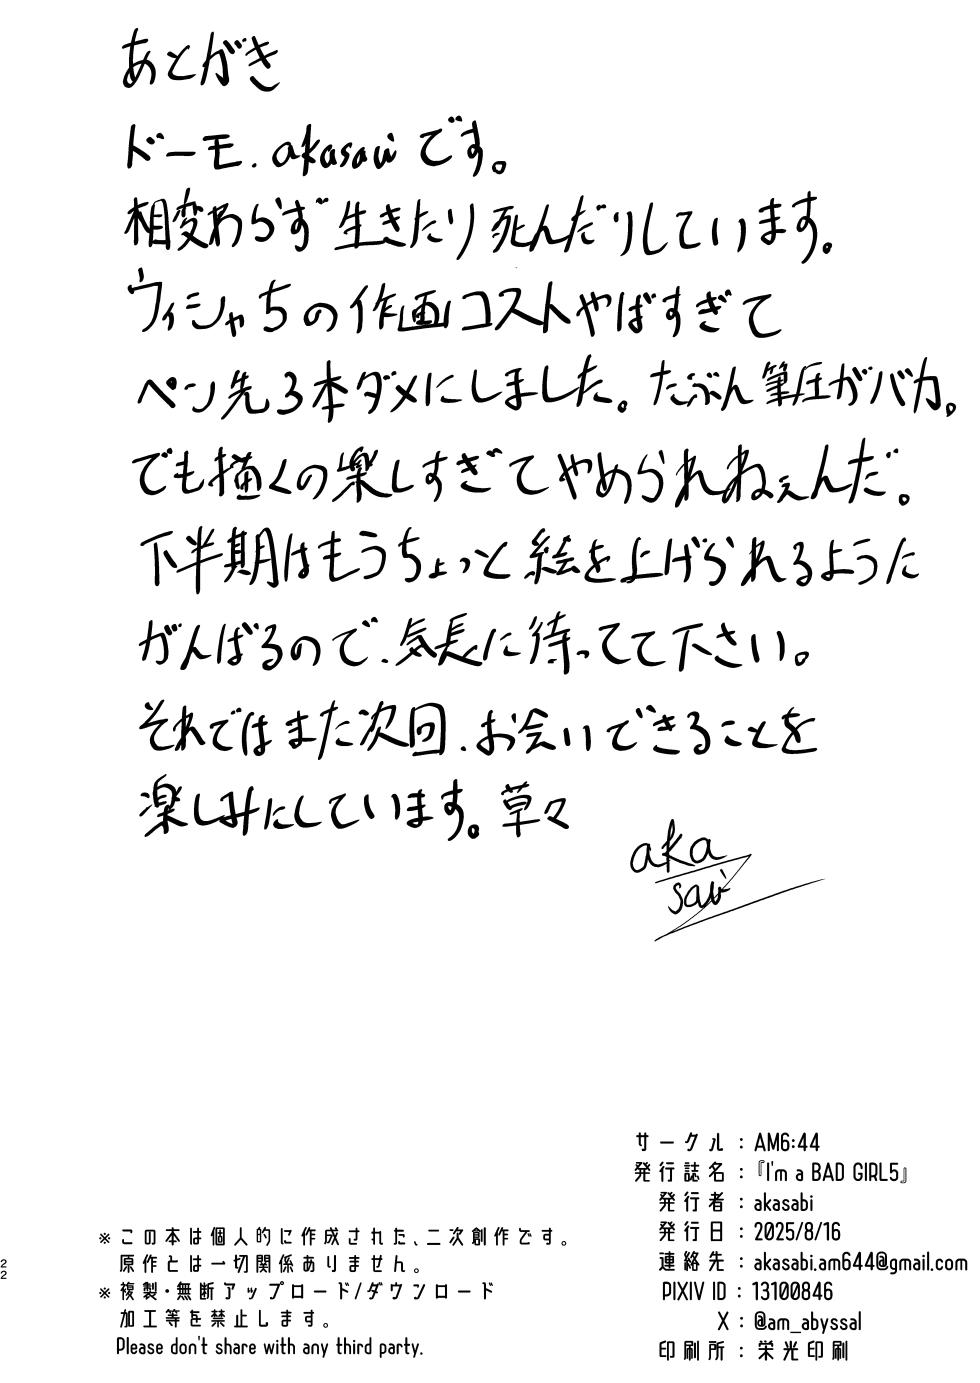 あとがき
ドーモ、akasabiです。
相変わらず生きたり死んだりしています。
ウィシャちの作画コストやばすぎて
ペン先3本ダメにしました。たぶん筆圧がバカ。
でも描くの楽しすぎてやめられねぇんだ。
下半期はもうちょっと絵を上げられるように
がんばるので、気長に待ってて下さい。
それではまた次回、お会いできることを
楽しみにしています。草々
aka
sabi
サークル：AM6:44
発行誌名：『I'm a BAD GIRL5』
発行者：akasabi
発行日：2025/8/16
連絡先：akasabi.am644@gmail.com
PIXIV ID：13100846
X：@am_abyssal
印刷所：栄光印刷
※この本は個人的に作成された、二次創作です。
原作とは一切関係ありません。
※複製・無断アップロード/ダウンロード
加工等を禁止します。
Please don't share with any third party.
22